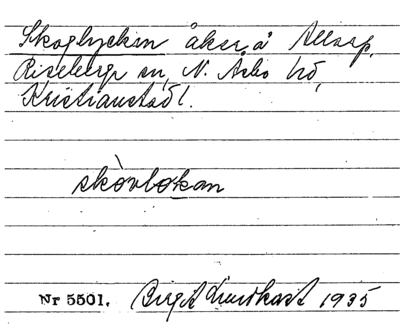 Skoglyckan åker, å Allarp,
Riseberga sn, N. Åsbo hd,
Kristianstad l.
skòvlokan
Nr 5501. Birgit Lundkast 1935